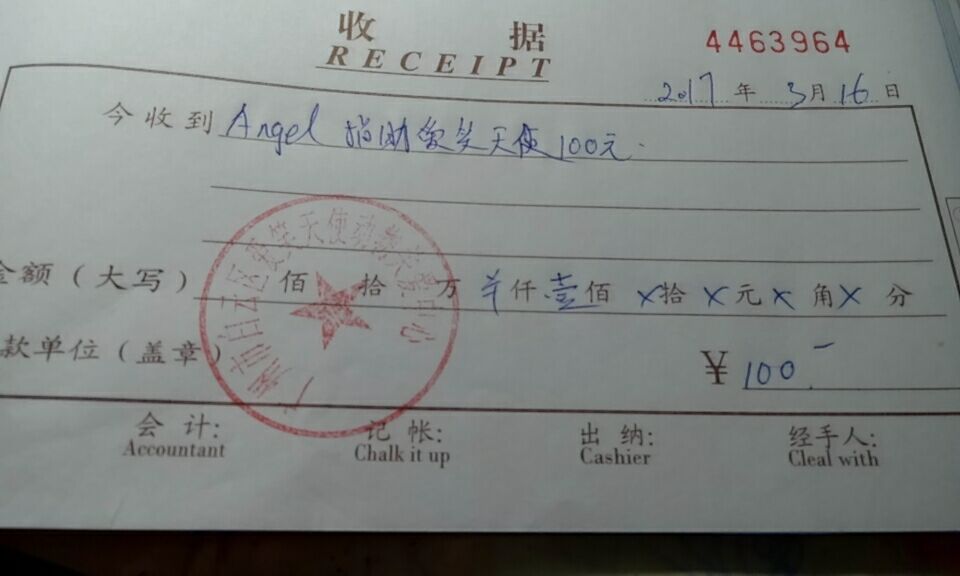 收 据
RECEIPT
4463964
2017 年 3 月 16 日
今收到 Angel 捐助爱笑天使100元.
金额(大写) 佰 拾 万 羊 仟 壹 佰 × 拾 × 元 × 角 × 分
款单位(盖章) ¥ 100.–
广州市白云区爱笑天使
会 计: 记 帐: 出 纳: 经手人:
Accountant Chalk it up Cashier Cleal with